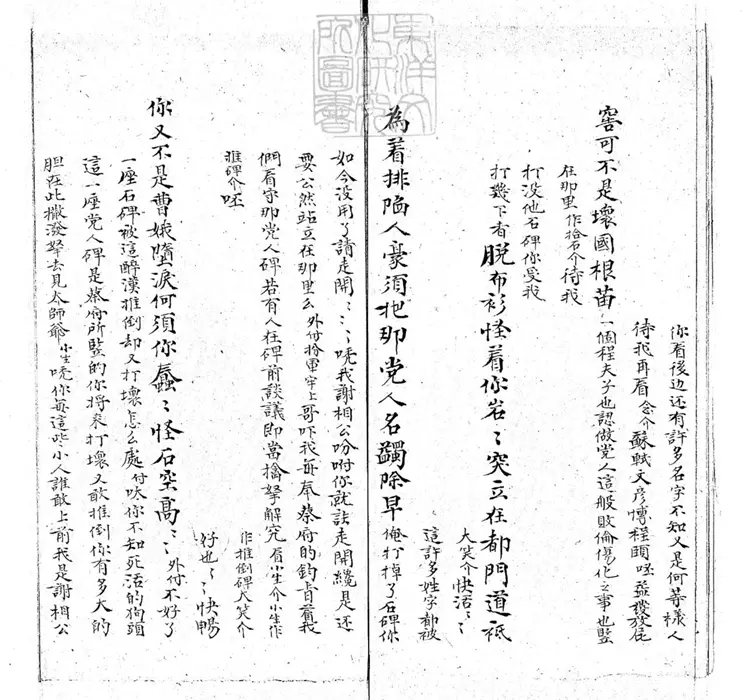 你看後边还有許多名字不知又是何等樣人
待我再看念介蘇軾文彦愽程頤呸益發放屁
窖可不是壞國根苗一個程夫子也認做党人這般敗倫傷化之事也監
在那里作拾石介待我
打没他石碑你受我
打幾下者脱布衫怪着你岩〻突立在都門道祇
大笑介快活〻〻
這許多姓字都被
為着排陷人豪須把那党人名蠲除早俺打掉了石碑你
如今没用了請走開〻〻〻唬我謝相公吩咐你就該走開纔是还
要公然跕立在那里么外付扮軍牢上哥吓我每奉蔡府的鈞旨着我
們看守那党人碑若有人在碑前談議即當擒拏解究看小生介小生作
推碑介呸
作推倒碑大笑介
好也〻〻快暢
你又不是曹娥墮淚何須你蠢〻怪石突高〻〻外付不好了
一座石碑被這醉漢推倒却又打壞怎么處付呔你不知死活的狗頭
這一座党人碑是蔡府所監的你將来打壞又敢推倒你有多大的
胆在此撒潑拏去見太師爺小生唬你每這些小人誰敢上前我是謝相公
東洋文
化研究
所圖書